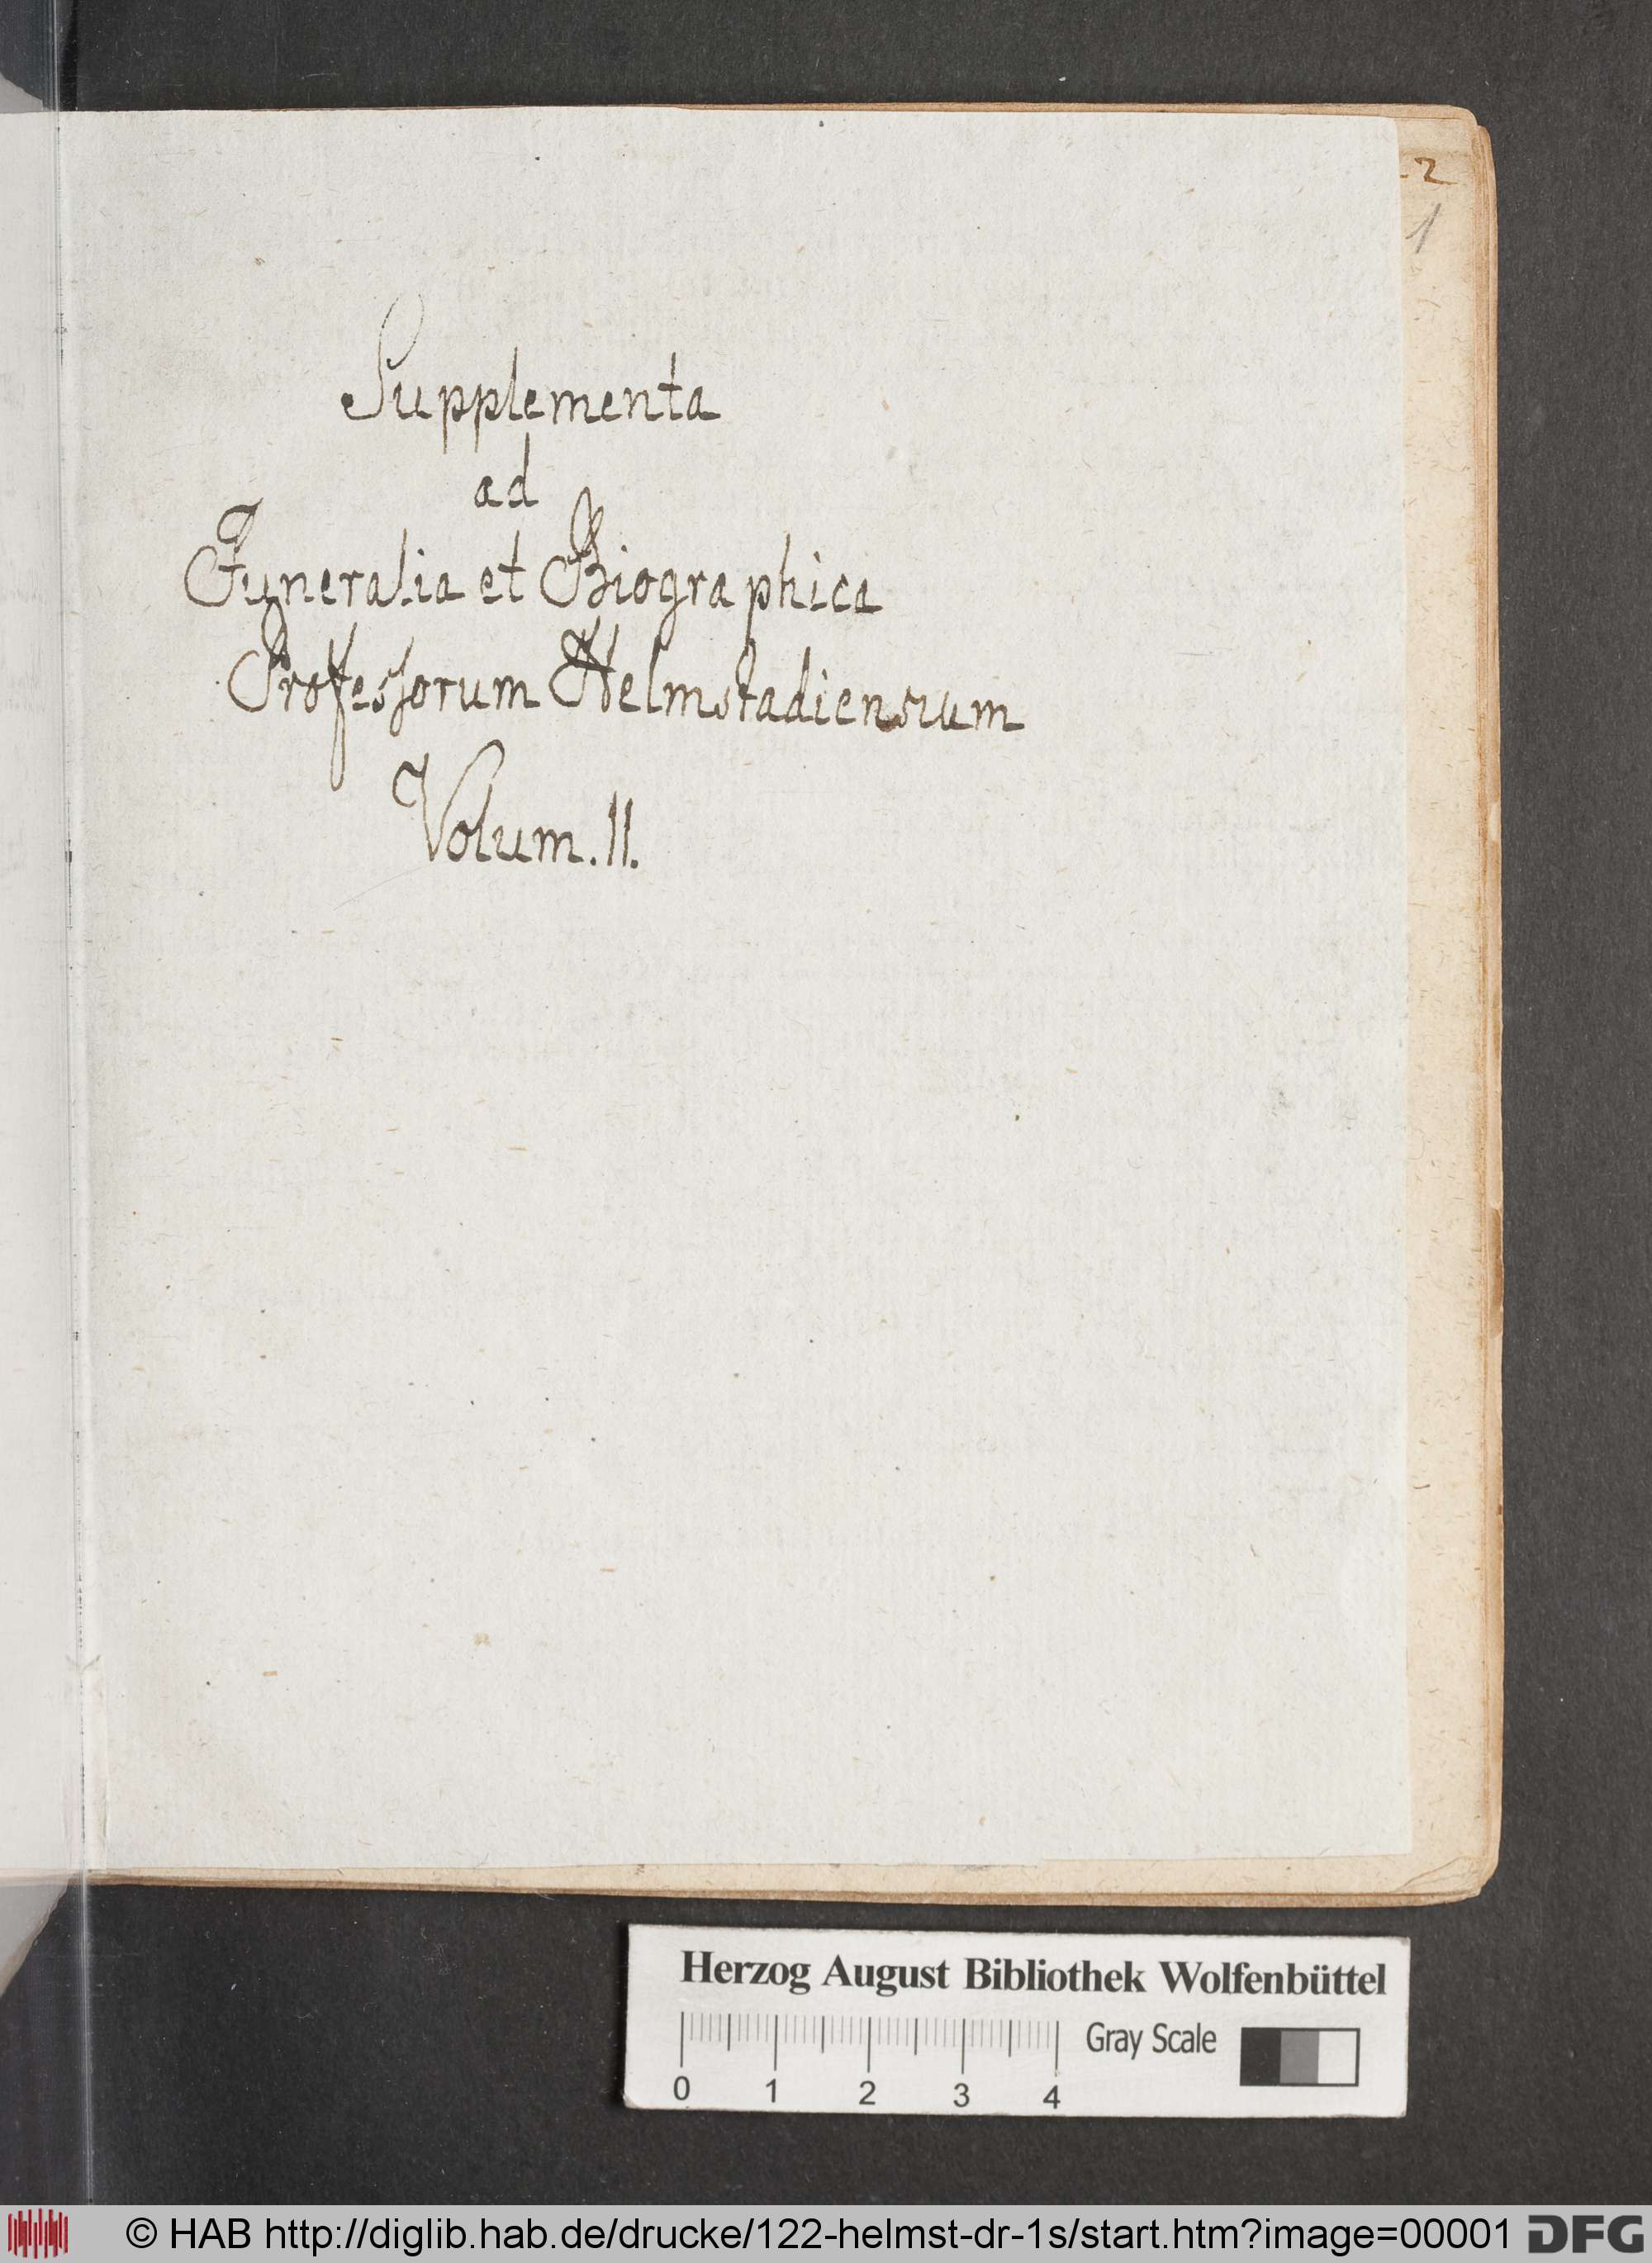 2
1
Supplementa
ad
Funeralia et Biographica
Professorum Helmstadiensium
Volum. II.
Herzog August Bibliothek Wolfenbüttel
Gray Scale
0 1 2 3 4
© HAB http://diglib.hab.de/drucke/122-helmst-dr-1s/start.htm?image=00001 DFG